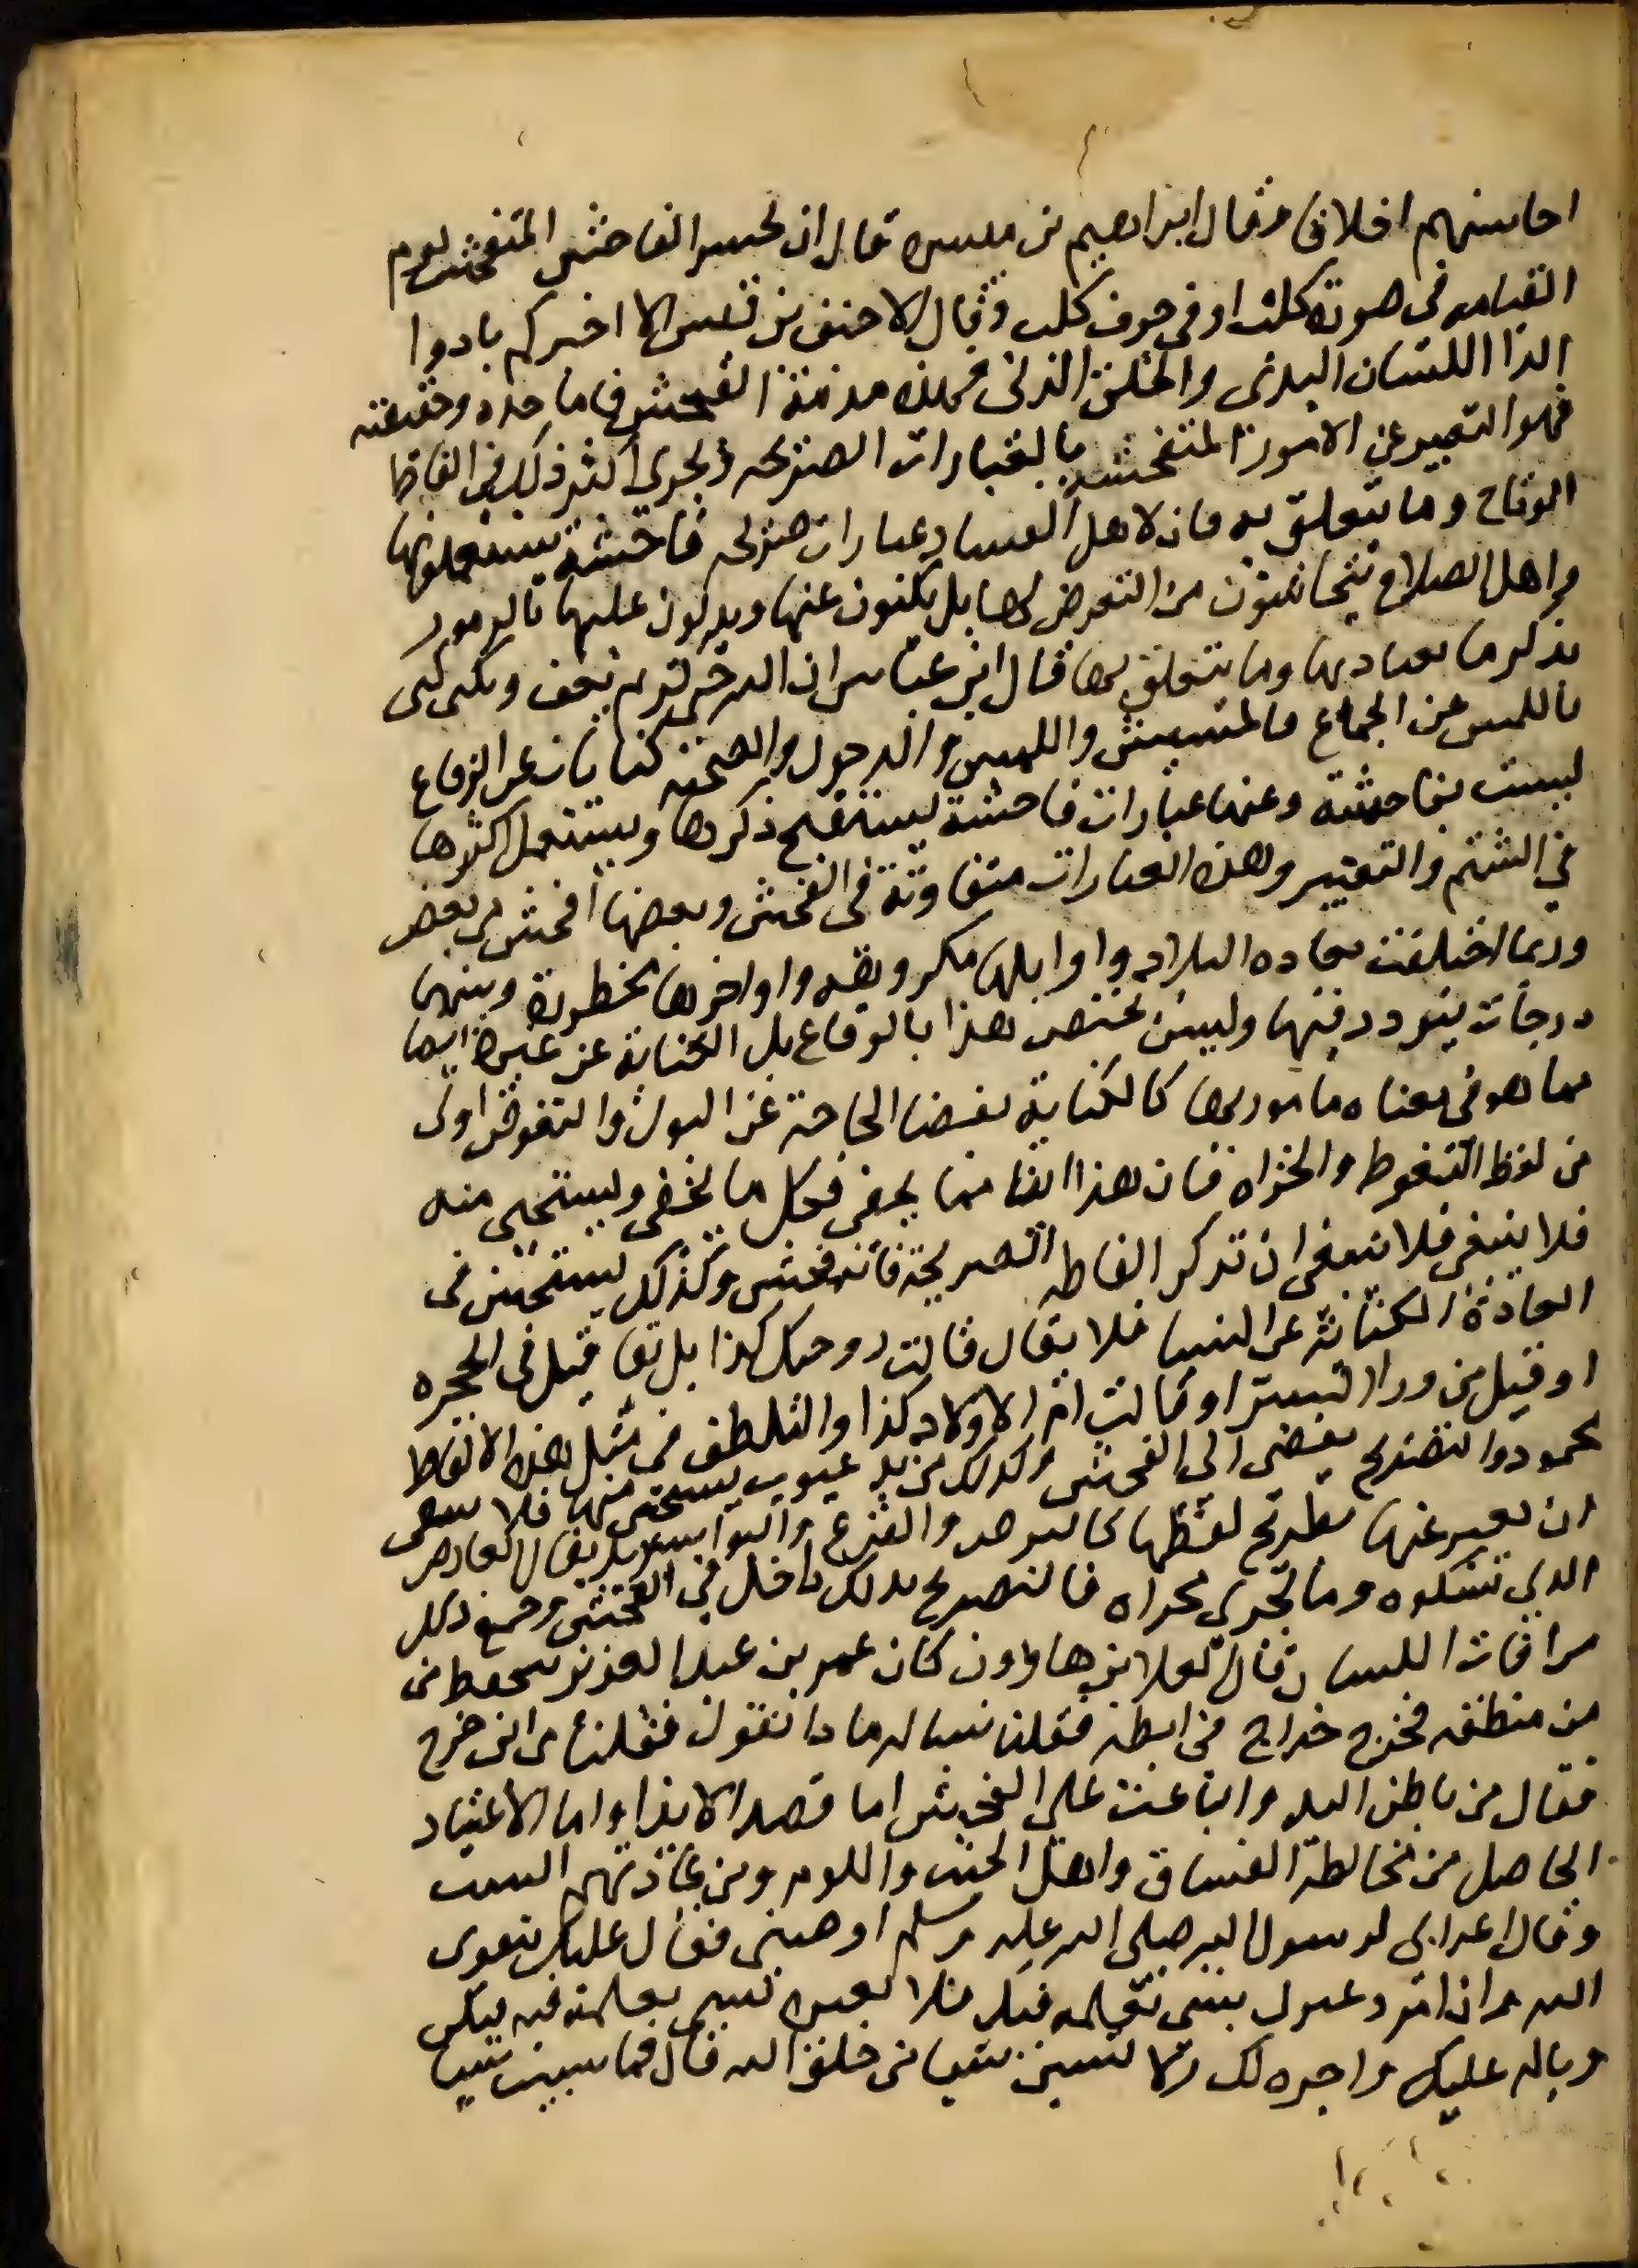 احاسنهم اخلاقا وقال ابراهيم بن ميسره قال ان يحسر الفاحش المتفحش يوم
القيامه فى صورة كلب او فى جوف كلب وقال الاحنف بن قيس الا اخبركم بادوا
الدا اللسان البذى والخلق الدنى فهذه مذمة الفحش فاما حده وحقيقته
فهو التعبير عن الامور المتفحشه بالعبارات الصريحه ويجرى اكثر ذلك فى الفاظ
الوقاع وما يتعلق به فان لاهل الفساد عبارات صريحه فاحشة يستعملونها
واهل الصلاح يتحاشون من التعرض لها بل يكنون عنها ويدلون عليها بالرموز
بذكر ما يعاديها وما يتعلق بها قال ابن عباس ان الله حى كريم يعف ويكنى كنى
باللمس عن الجماع فالمسيس واللمس والدخول والصحبه كنايات عن الوقاع
ليست بفاحشة وعنها عبارات فاحشة يستقبح ذكرها ويستعمل اكثرها
في الشتم والتعيير وهذه العبارات متفاوتة فى الفحش وبعضها افحش من بعض
وربما اختلفت بعاده البلاد واوايلها مكروهه واواخرها محظورة وبينهما
درجات يتردد فيها وليس يختص هذا بالوقاع بل الكناية عن غيرها ايضا
مما هو فى معناه مامور بها كالكناية بقضا الحاجة عن البول والتغوط اولى
من لفظ التغوط والخراه فان هذا ايضا مما يخفى فكل ما يخفى ويستحيى منه
فلا ينبغى فلا ينبغى ان تذكر الفاظه الصريحة فانه فحش وكذلك يستحسن فى
العادة الكناية عن النسا فلا يقال قالت زوجتك كذا بل يقا قيل فى الحجره
او قيل من ورا الستر او قالت ام الاولاد كذا والتلطف فى مثل هذه الالفاظ
محمود والتصريح يفضى الى الفحش وكذلك من به عيوب يستحى منها فلا ينبغى
ان يعبر عنها بصريح لفظها كالبرص والقرع والبواسير بل يقال العارض
الذى تشكوه وما يجرى مجراه فالتصريح بذلك داخل فى الفحش وجميع ذلك
من افات اللسان وقال العلا بن هارون كان عمر بن عبد العزيز يتحفظ فى
من منطقه فخرج خراج فى ابطه فقلنا نساله ماذا تقول فقلنا من اين خرج
فقال من باطن اليد والباعث على الفحش اما قصد الايذا واما الاعتياد
الحاصل من مخالطة الفساق واهل الخبث واللوم ومن عادتهم السب
وقال اعرابى لرسول الله صلى الله عليه وسلم اوصنى فقال عليك بتقوى
الله وان امرو عيرك بشى تعلمه فيك فلا تعيره بشى تعلمه فيه يكن
وباله عليه واجره لك ولا تسبن شيا من خلق الله قال فما سببت شيا